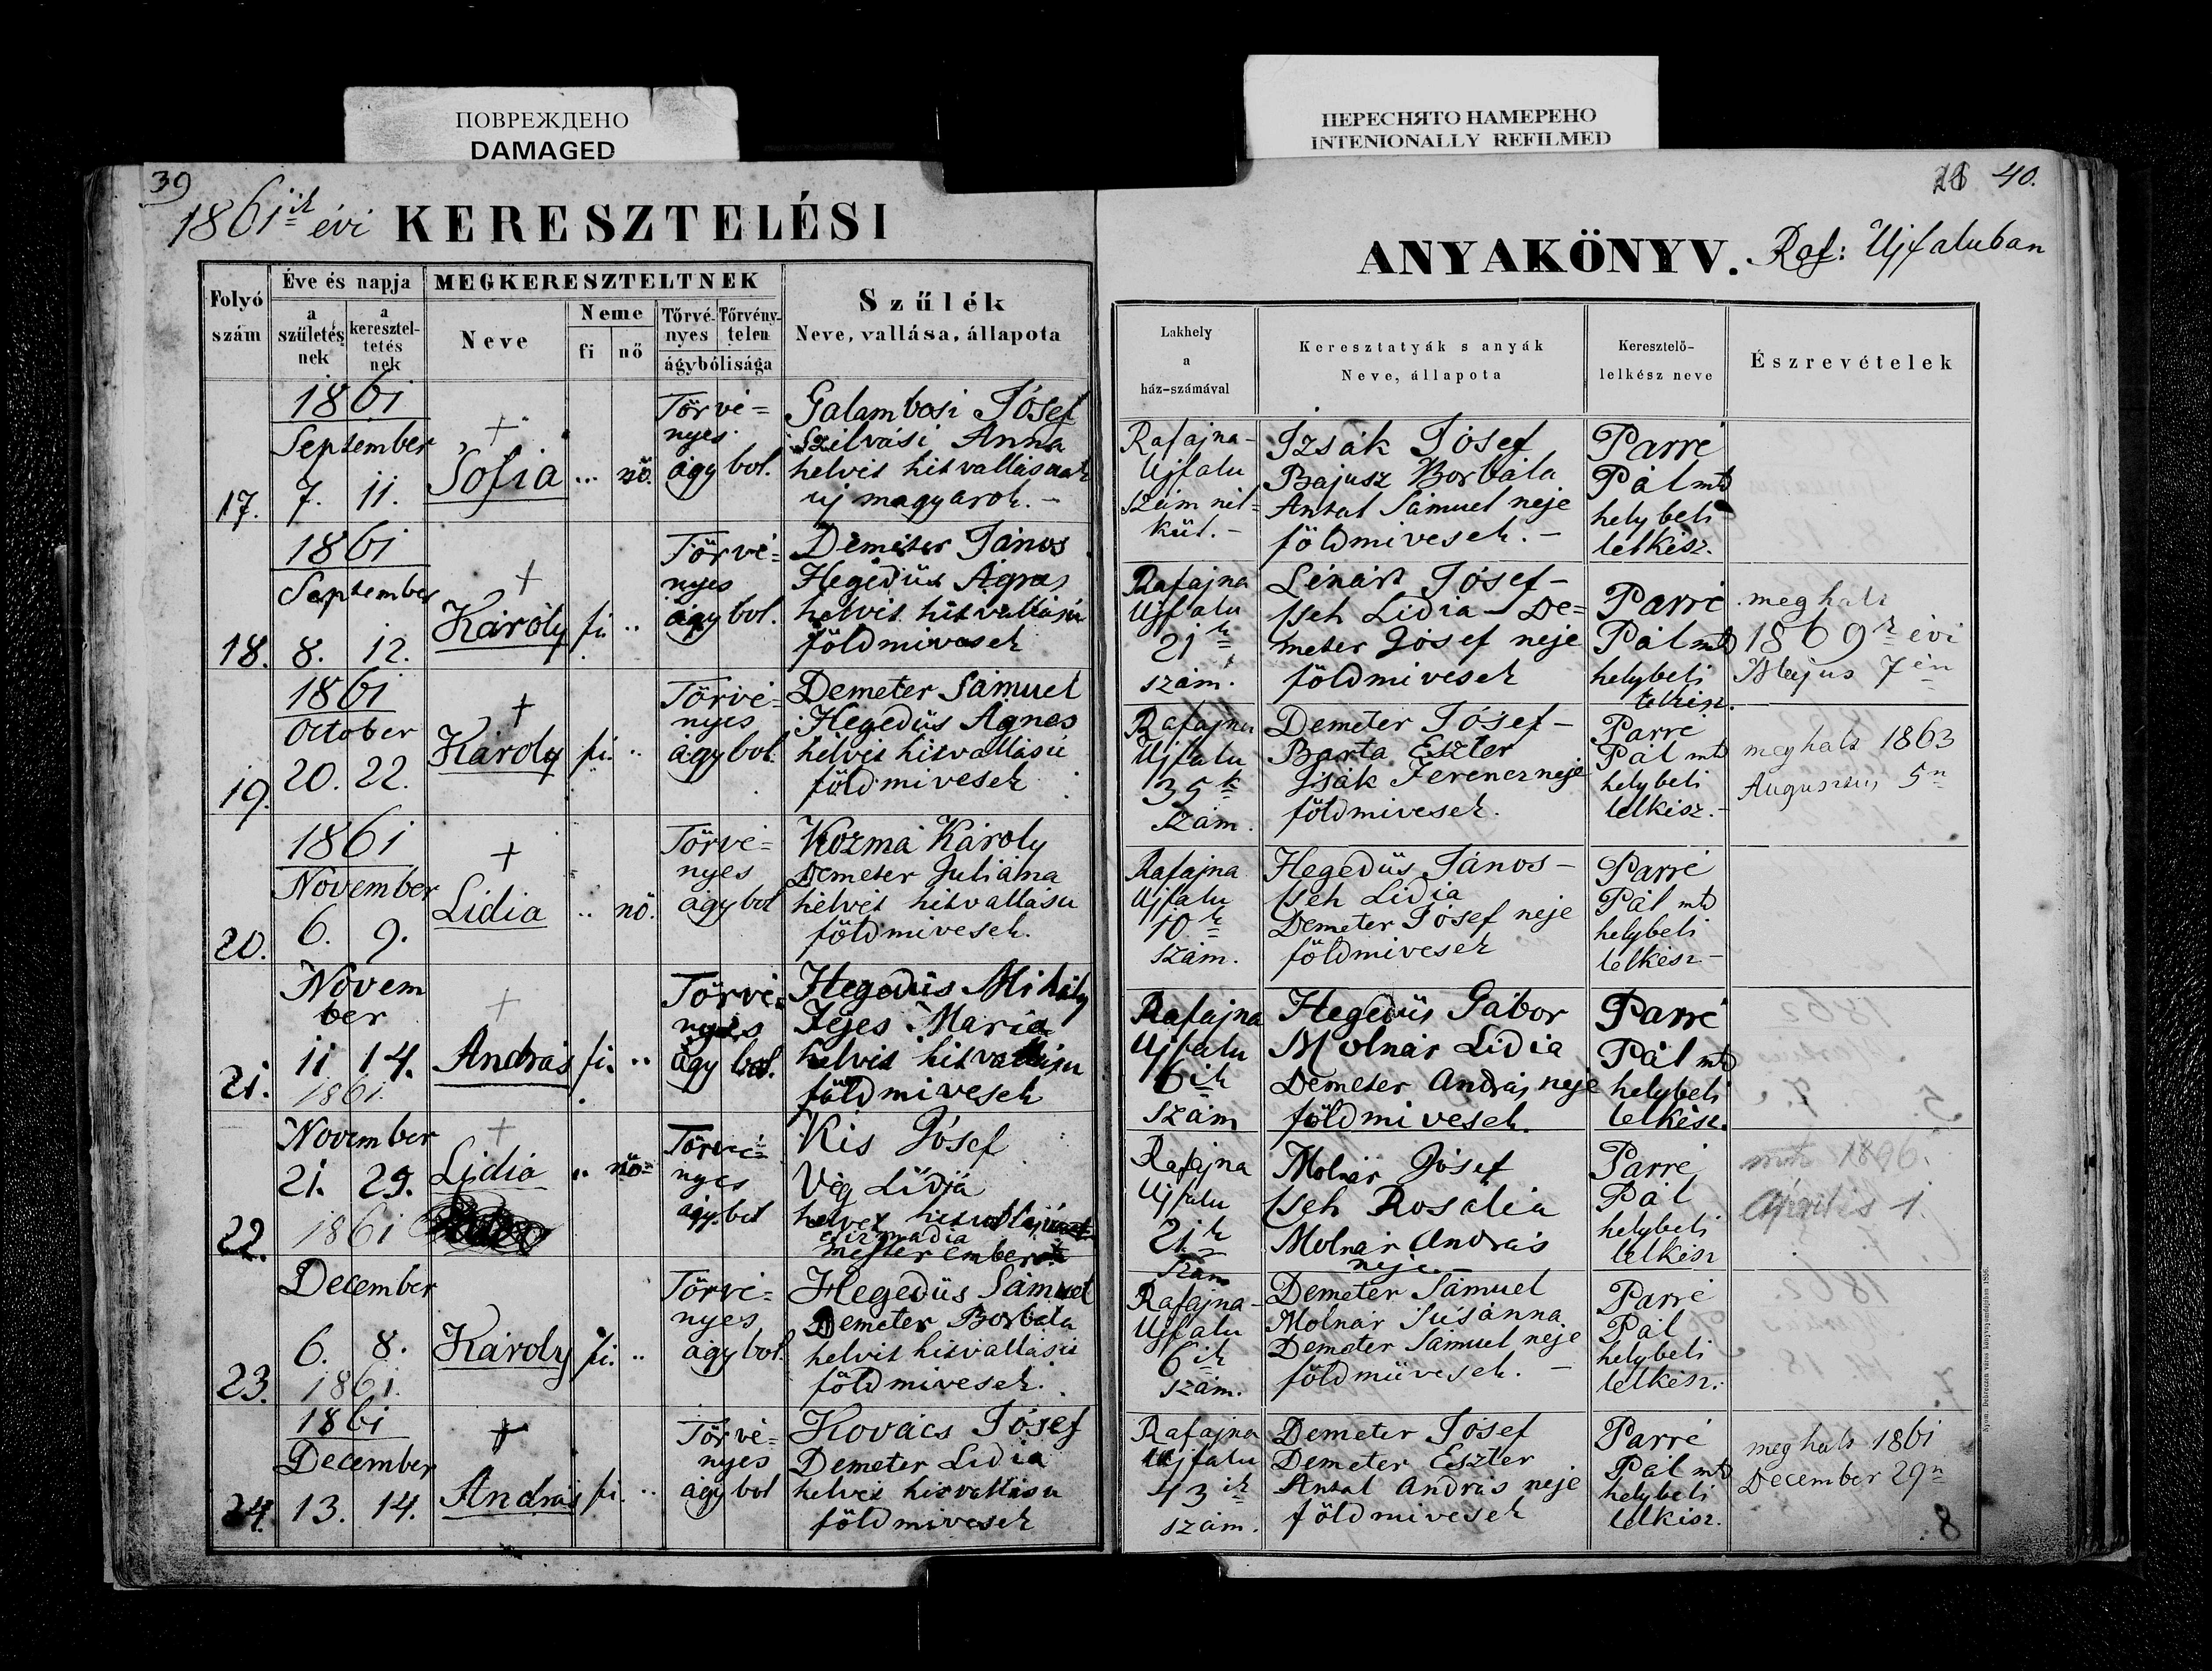 ПОВРЕЖДЕНО
DAMAGED
ПЕРЕСНЯТО НАМЕРЕНО
INTENIONALLY REFILMED
39
1861ik évi KERESZTELÉSI
Folyó szám
Éve és napja
a születésnek
a keresztel-tetésnek
MEGKERESZTELTNEK
Neve
Neme
fi
nő
Törvé-nyes
Törvény-telen
ágybólisága
Szűlék
Neve, vallása, állapota
1861
September
17. 7. 11.
Sofia ... nő.
Törvé=
nyes
ágybol.
Galambosi Jósef
Szilvási Anna
helvét hitvallásuak
uj magyarok. -
1861
September
18. 8. 12.
Károly fi. ..
Törvé=
nyes
ágybol.
Demeter János
Hegedüs Ágnes
helvét hitvallásu
földmivesek
1861
October
19. 20. 22.
Károly fi. ..
Törvé=
nyes
ágybol.
Demeter Sámuel
Hegedüs Ágnes
helvét hitvallásu
földmivesek
1861
November
20. 6. 9.
Lidia .. nő.
Törvé=
nyes
ágybol
Kozma Károly
Demeter Juliána
helvét hitvallásu
földmivesek.
Novem
ber
21. 11 14.
1861.
András fi. ..
Törvé=
nyes
ágybol.
Hegedüs Mihály
Fejes Mária
helvét hitvallásu
földmivesek
November
21. 29.
22. 1861
Lidia .. nő=
Törvé=
nyes
ágybol
Kis Jósef
Vég Lidja
helvét
csizmadia
mester ember
December
6. 8.
23. 1861.
Károly fi. ..
Törvé=
nyes
ágybol.
Hegedüs Sámuel
Demeter Borbála
helvét hitvallásu
földmivesek.
1861
December
24. 13. 14.
András fi. ..
Törvé=
nyes
ágybol
Kovács Jósef
Demeter Lidia
helvét hitvallásu
földmivesek
40.
ANYAKÖNYV. Raf: Ujfaluban
Lakhely
a
ház-számával
Keresztatyák s anyák
Neve, állapota
Keresztelő-
lelkész neve
Észrevételek
Rafajna-
Ujfalu
szám nél=
kül. -
Izsák Jósef
Bajusz Borbála
Antal Sámuel neje
földmivesek. -
Parré
Pál mk
helybeli
lelkész.
Rafajna
Ujfalu
21k
szám.
Lénárt Jósef-
Iseh Lidia - De=
meter Jósef neje
földmivesek
Parré
Pál mk
helybeli
lelkész.
meghalt
1869k évi
Május 7én
Rafajna
Ujfalu
35k
szám.
Demeter Jósef -
Barta Eszter
Izsák Ferencz neje
földmivesek.
Parré
Pál mk
helybeli
lelkész. -
meghalt 1863
Augusztus 5n
Rafajna
Ujfalu
10k
szám.
Hegedüs János -
Iseh Lidia
Demeter Jósef neje
földmivesek
Parré
Pál mk
helybeli
lelkész -
Rafajna
Ujfalu
6ik
szám
Hegedüs Gábor
Molnár Lidia
Demeter András neje
földmivesek.
Parré
Pál mk
helybeli
lelkész.
Rafajna
Ujfalu
21k
szám
Molnár Jósef
Iseh Rosália
Molnár András
neje. -
Parré
Pál
helybeli
lelkész
Április 1.
Rafajna-
Ujfalu
6ik
szám.
Demeter Sámuel
Molnár Susánna
Demeter Sámuel neje
földmüvesek. -
Parré
Pál
helybeli
lelkész.
Rafajna
Ujfalu
43ik
szám.
Demeter Jósef
Demeter Eszter
Antal András neje
földmivesek
Parré
Pál mk
helybeli
lelkész.
meghalt 1861
December 29n
8